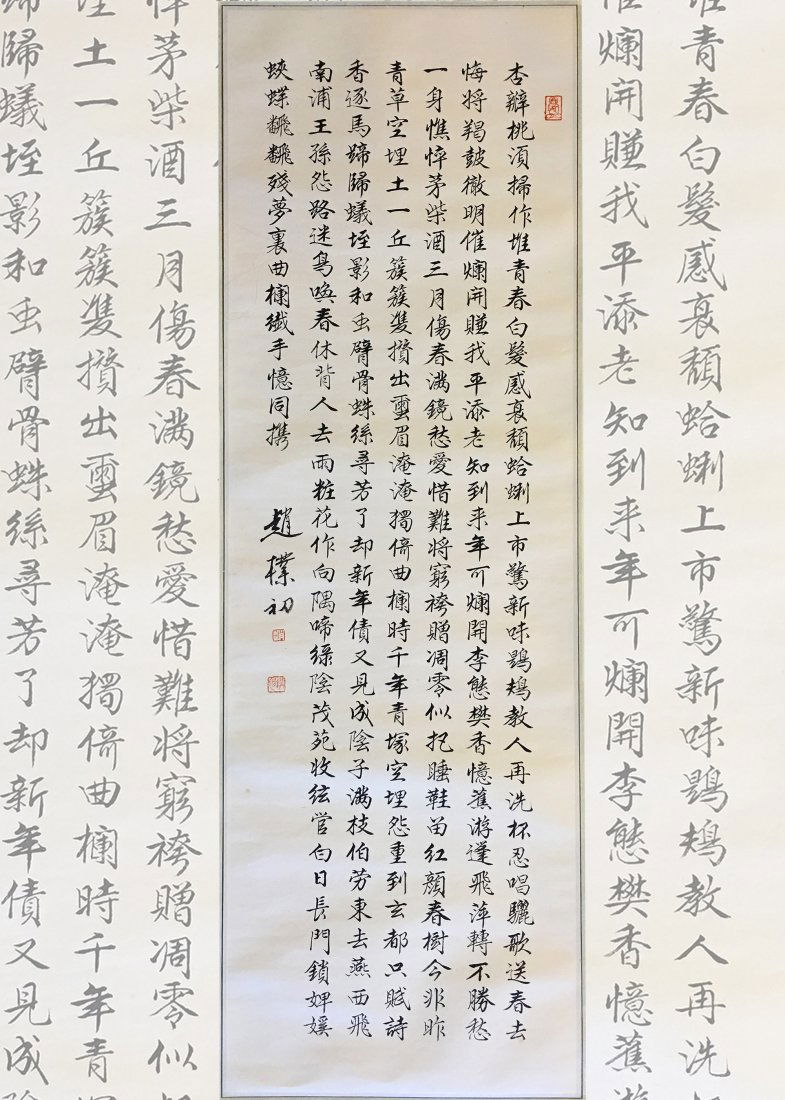 堆青春白髮感衰頹蛤蜊上市驚新味鶗鴂教人再洗
催爛開賺我平添老知到来年可爛開李態樊香憶蕉游
杏瓣桃須掃作堆青春白髮感衰頹蛤蜊上市驚新味鶗鴂教人再洗杯忍唱驪歌送春去
悔將羯鼓徹明催爛開賺我平添老知到来年可爛開李態樊香憶蕉游逢飛萍轉不勝愁
一身憔悴茅柴酒三月傷春滿鏡愁愛惜難將窮袴贈凋零似把睡鞋留紅顏春樹今非昨
青草空埋土一丘簇簇雙攢出璽眉淹淹獨倚曲欄時千年青塚空埋怨重到玄都只賦詩
香逐馬蹄歸蟻垤影和虫臂骨蛛絲尋芳了却新年債又見成陰子滿枝伯勞東去燕西飛
南浦王孫怨路迷鳥喚春休背人去雨粧花作向隅啼綠陰茂苑收絃管白日長門鎖婢媛
蛺蝶飜飜殘夢裏曲欄纖手憶同携
趙樸初
悴茅柴酒三月傷春滿鏡愁愛惜難將窮袴贈凋零似
埋土一丘簇簇雙攢出璽眉淹淹獨倚曲欄時千年青
蹄歸蟻垤影和虫臂骨蛛絲尋芳了却新年債又見成